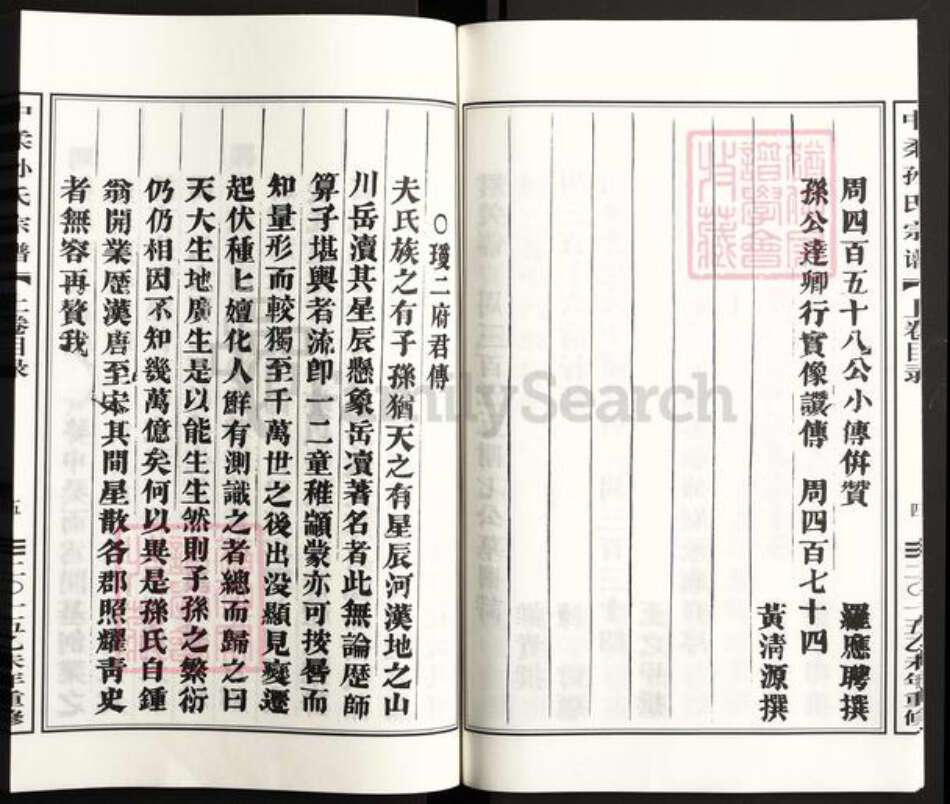 周四百五十八公小傳併贊 羅應聘撰
孫公達卿行實像讚傳 周四百七十四
黃清源撰
○瓊二府君傳
夫氏族之有子孫猶天之有星辰河漢地之山
川岳瀆其星辰懸象岳凟著名者此無論歷師
算子堪輿者流卽一二童稚顓蒙亦可按晷而
知量形而較獨至千萬世之後出没顯見變遷
起伏種七嬗化人鮮有測識之者總而歸之曰
天大生地廣生是以能生生然則子孫之繁衍
仍仍相因不知幾萬億矣何以異是孫氏自鍾
翁開業歷漢唐至宋其間星散各郡照耀靑史
者無容再贅我
孙氏宗譜
上卷目录
五
二〇一五乙未年重修
孙氏宗譜
上卷目录
四
二〇一五乙未年重修
FamilySearch